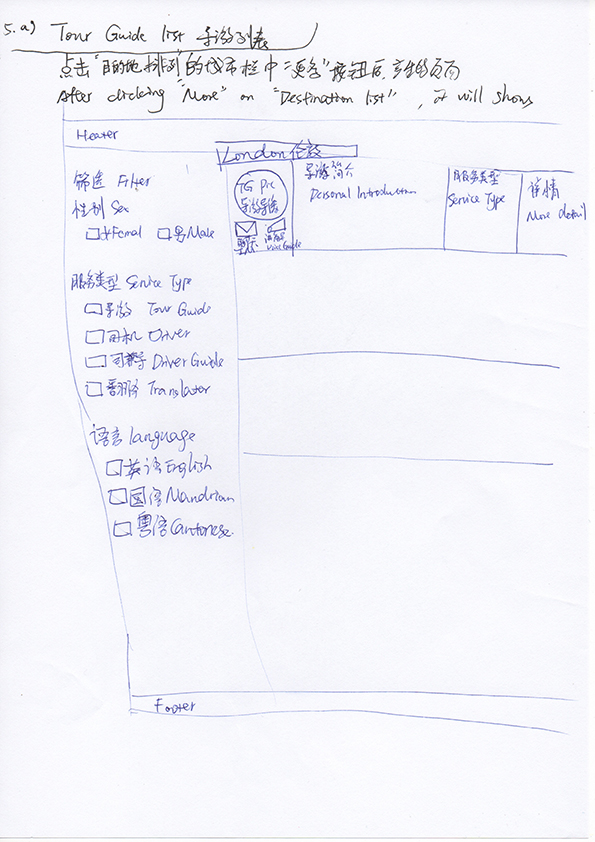 5.a) Tour Guide list 导游列表
点击"目的地排列"的城市栏中"更多"按钮后产生的页面
After clicking "More" on "Destination list", it will shows
Header
London 伦敦
筛选 Filter
性别 Sex
女Femal 男Male
服务类型 Service Type
导游 Tour Guide
司机 Driver
司兼导 Driver Guide
翻译 Translator
语言 language
英语 English
国语 Mandrian
粤语 Cantonese.
TG Pic
导游导像
导游简介
Personal Introduction
服务类型
Service Type
详情
More detail
Footer